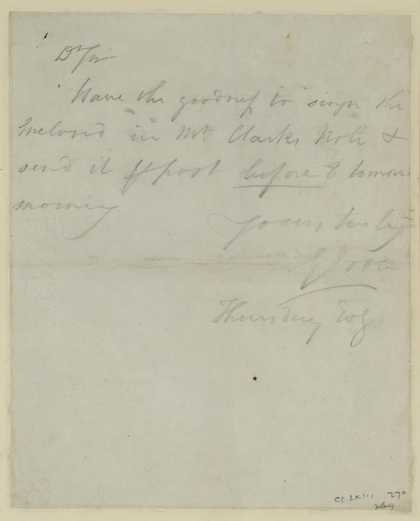 Dr Sir
Have the goodness to sign the
Inclosed in Mr. Clarks Note &
send it pr post before 8 tomorrow
morning
Yours truly
Thursday Evg
270